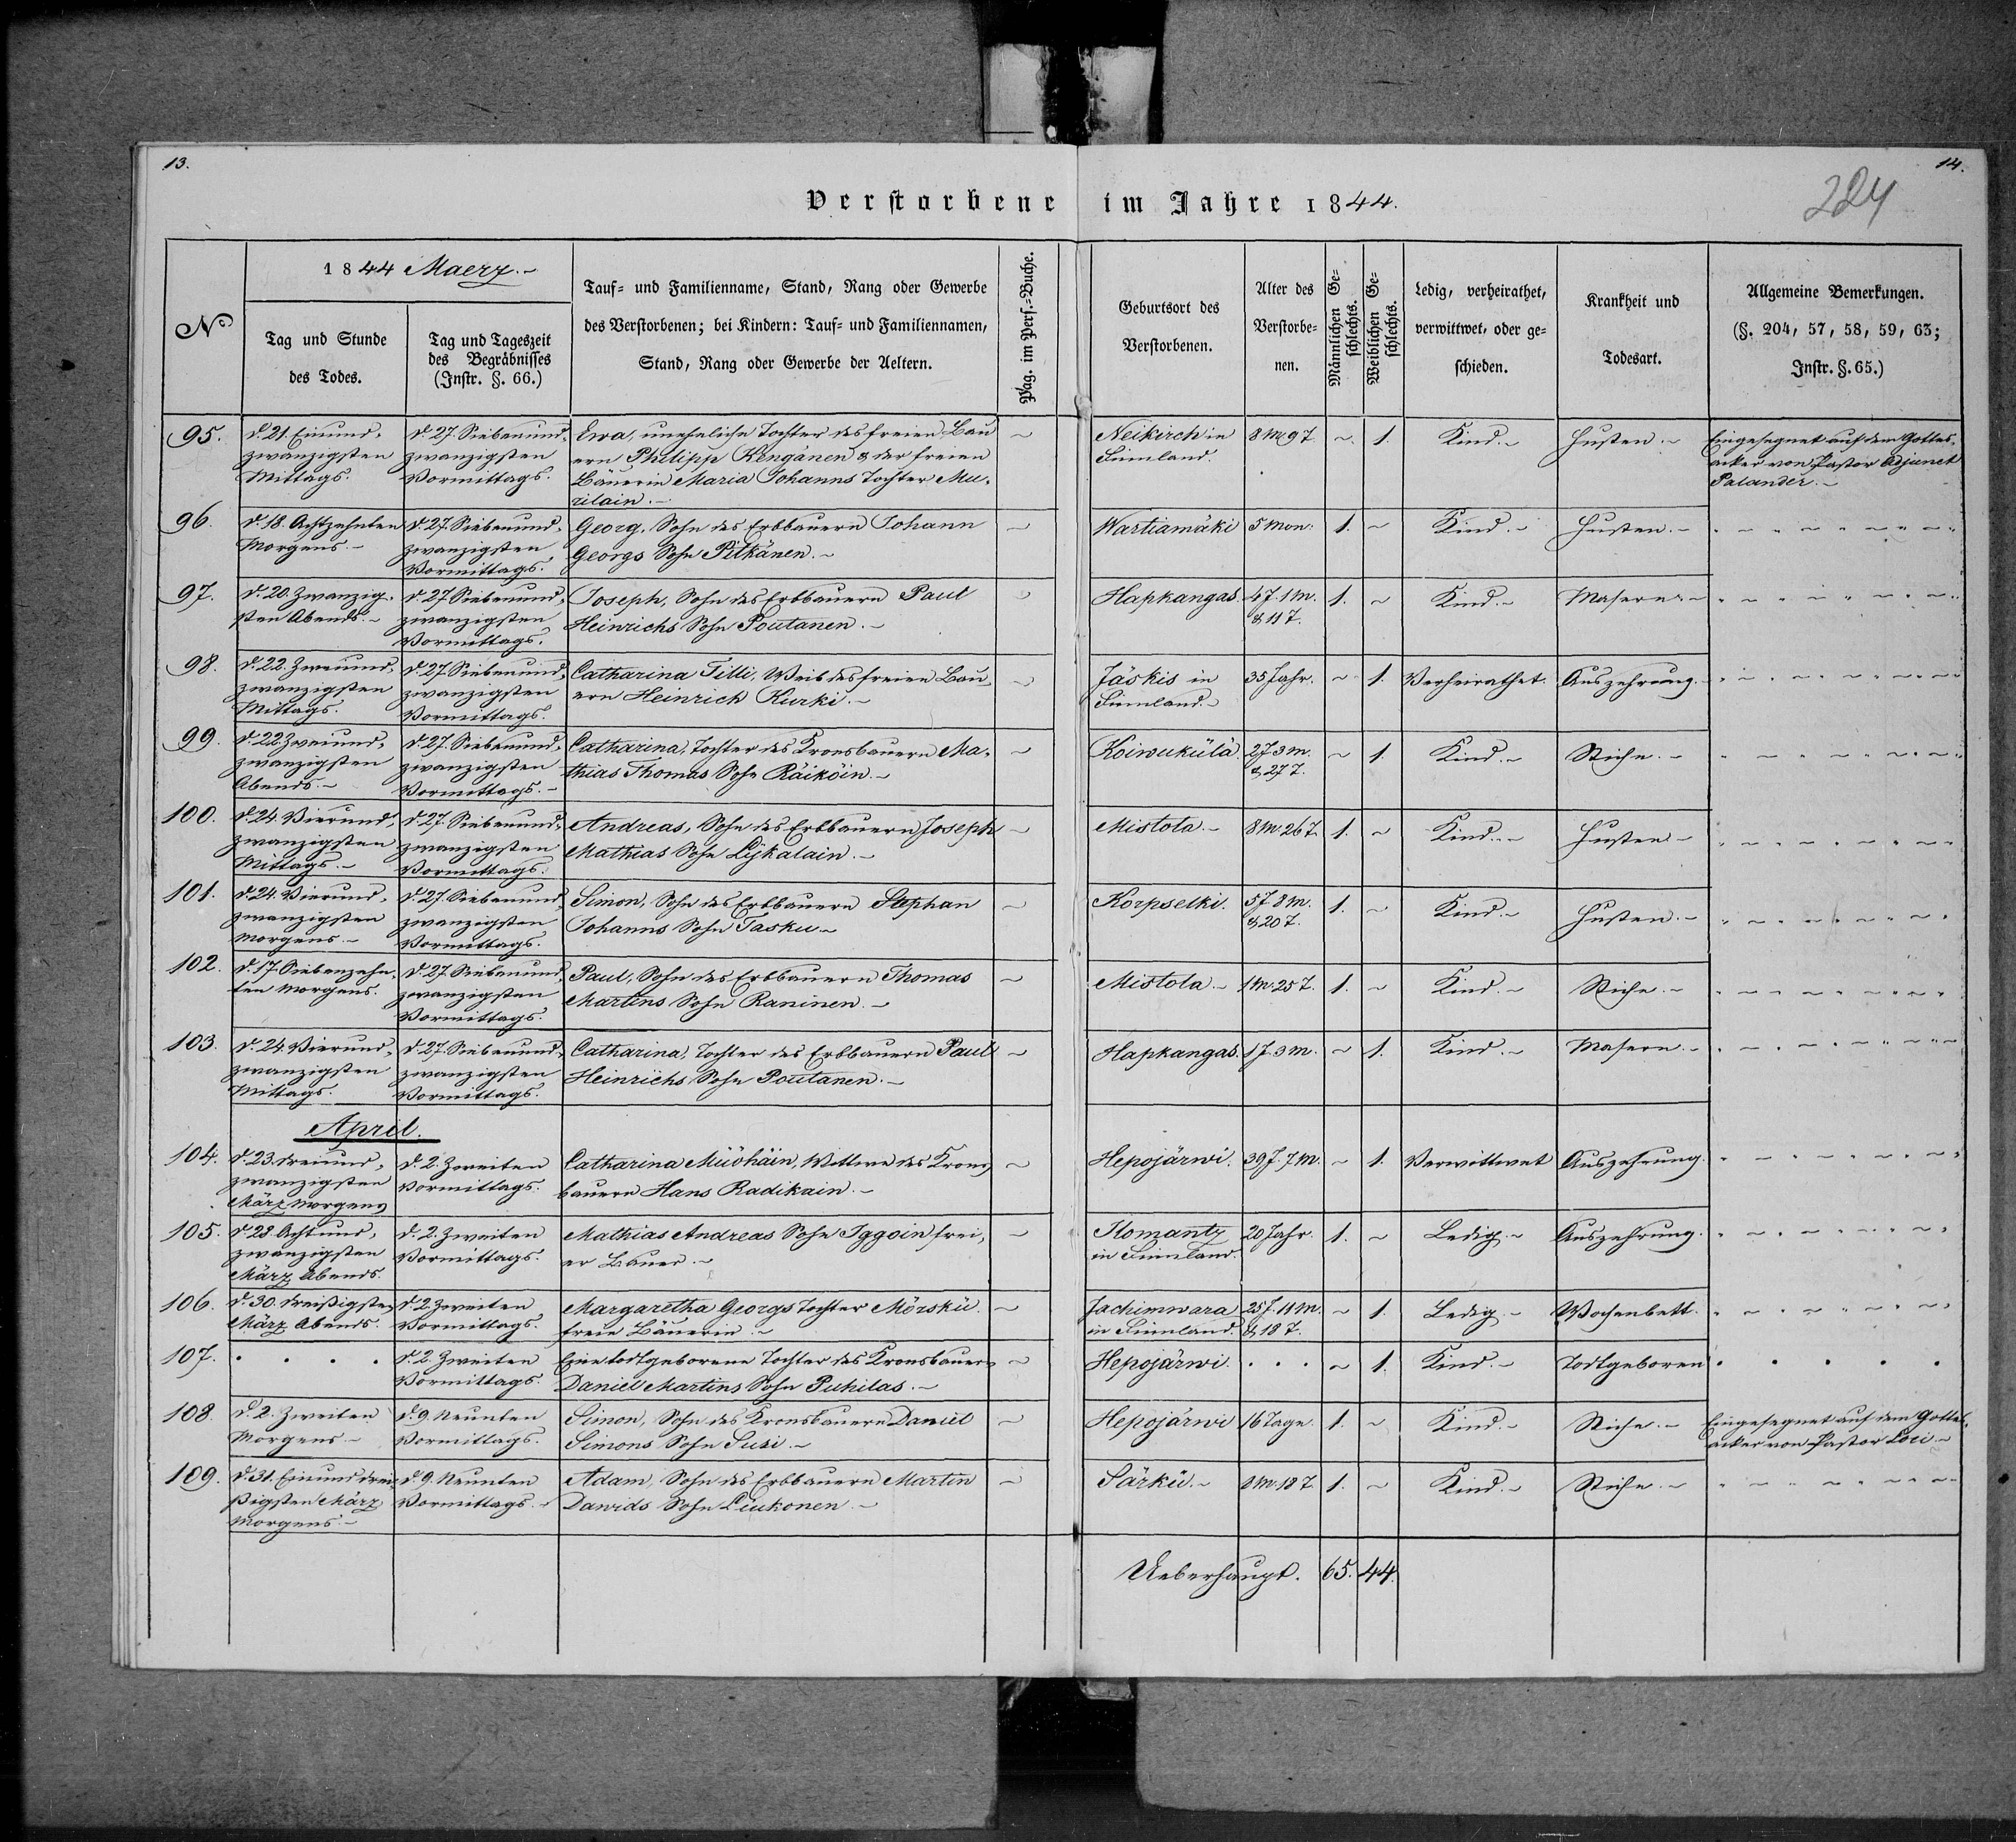 13.
14.
224
Verstorbene im Jahre 1844.
No
1844 Maerz.
Tag und Stunde
des Todes.
Tag und Tageszeit
des Begräbnisses
(Instr. §. 66.)
Tauf- und Familienname, Stand, Rang oder Gewerbe
des Verstorbenen; bei Kindern: Tauf- und Familiennamen,
Stand, Rang oder Gewerbe der Aeltern.
Pag. im Pers.-Buche.
Geburtsort des
Verstorbenen.
Alter des
Verstorbe-
nen.
Männlichen Ge-
schlechts.
Weiblichen Ge-
schlechts.
Ledig, verheirathet,
verwittwet, oder ge-
schieden.
Krankheit und
Todesart.
Allgemeine Bemerkungen.
(§. 204, 57, 58, 59, 63;
Instr. §. 65.)
95.
d. 21. Einund-
zwanzigsten
Mittags.
d. 27. Siebenund-
zwanzigsten
Vormittags.
Ewa, uneheliche Tochter des freien Bau
ern Philipp Kengänen & der freien
Bäuerin Maria Johanns Tochter Mu-
rilain.
Neikirch in
Finnland.
8 M 9 T
1.
Kind.
Husten.
Eingesegnet auf dem Gottes-
acker von Pastor Adjunct
Palander.
96.
d. 18. Achtzehnten
Morgens.
d. 27. Siebenund-
zwanzigsten
Vormittags.
Georg, Sohn des Erbbauern Johann
Georgs Sohn Pitkänen.
Wartiamäki
5 Mon.
1.
Kind.
Husten.
97.
d. 20. Zwanzig-
sten Abends.
d. 27 Siebenund-
zwanzigsten
Vormittags.
Joseph, Sohn des Erbbauern Paul
Heinrichs Sohn Poutanen.
Hapkangas.
4 J. 1 M.
& 11 T.
1.
Kind.
Masern.
98.
d. 22. Zweiund-
zwanzigsten
Mittags.
d. 27. Siebenund-
zwanzigsten
Vormittags.
Catharina Tilli, Weib des freien Bau
ern Heinrich Kurki.
Jäskis in
Finnland.
35 Jahr.
1.
Verheirathet.
Auszehrung.
99.
d. 22. Zweiund-
zwanzigsten
Abends.
d. 27. Siebenund-
zwanzigsten
Vormittags.
Catharina, Tochter des Kronsbauern Ma-
thias Thomas Sohn Räiköin.
Koiwukülä.
2 J 3 M.
& 27 T.
1.
Kind.
Stiche.
100.
d. 24. Vierund-
zwanzigsten
Mittags.
d. 27. Siebenund-
zwanzigsten
Vormittags.
Andreas, Sohn des Erbbauern Joseph
Mathias Sohn Lijkalain.
Mistola.
8 M. 26 T.
1.
Kind.
Husten.
101.
d. 24. Vierund-
zwanzigsten
Morgens.
d. 27. Siebenund-
zwanzigsten
Vormittags.
Simon, Sohn des Erbbauern Stephan
Johanns Sohn Tasku.
Korpselki.
5 J 8 M.
& 20 T.
1.
Kind.
Husten.
102.
d. 17. Siebenzehn-
ten Morgens.
d. 27. Siebenund-
zwanzigsten
Vormittags.
Paul, Sohn des Erbbauern Thomas
Martins Sohn Raninen.
Mistola.
1 M. 25 T.
1.
Kind.
Stiche.
103.
d. 24. Vierund-
zwanzigsten
Mittags.
d. 27. Siebenund-
zwanzigsten
Vormittags.
Catharina, Tochter des Erbbauern Paul
Heinrichs Sohn Poutanen.
Hapkangas.
1 J. 3 M.
1.
Kind.
Masern.
April.
104.
d. 23. dreiund-
zwanzigsten
März Morgens
d. 2. Zweiten
Vormittags.
Catharina Müöhäin, Wittwe des Krons
bauern Hans Radikain.
Hepojärwi.
39 J. 7 M.
1.
Verwittwet
Auszehrung.
105.
d. 28. Achtund-
zwanzigsten
März Abends.
d. 2. Zweiten
Vormittags.
Mathias Andreas Sohn Iggoin frei-
er Bauer.
Ilomantz
in Finnland.
20 Jahr.
1.
Ledig.
Auszehrung.
106.
d. 30. dreißigsten
März Abends.
d. 2. Zweiten
Vormittags.
Margaretha Georgs Tochter Mörskü.
freie Bäuerin.
Jachimwara
in Finnland.
25 J. 11 M.
& 18 T.
1.
Ledig.
Wochenbett.
107.
d. 2. Zweiten
Vormittags.
Eine todtgeborene Tochter des Kronsbauern
Daniel Martins Sohn Puhilas.
Hepojärwi.
1.
Kind.
Todtgeboren
108.
d. 2. Zweiten
Morgens.
d. 9. Neunten
Vormittags.
Simon, Sohn des Kronsbauern Daniel
Simons Sohn Susi.
Hepojärwi
16 Tage.
1.
Kind.
Stiche.
Eingesegnet auf dem Gottes-
acker von Pastor Loci.
109.
d. 31. Einunddrei-
ßigsten März
Morgens.
d. 9. Neunten
Vormittags.
Adam, Sohn des Erbbauern Martin
Dawids Sohn Liukonen.
Särkü.
18 T.
1.
Kind.
Stiche.
Ueberhaupt. 65. 44.